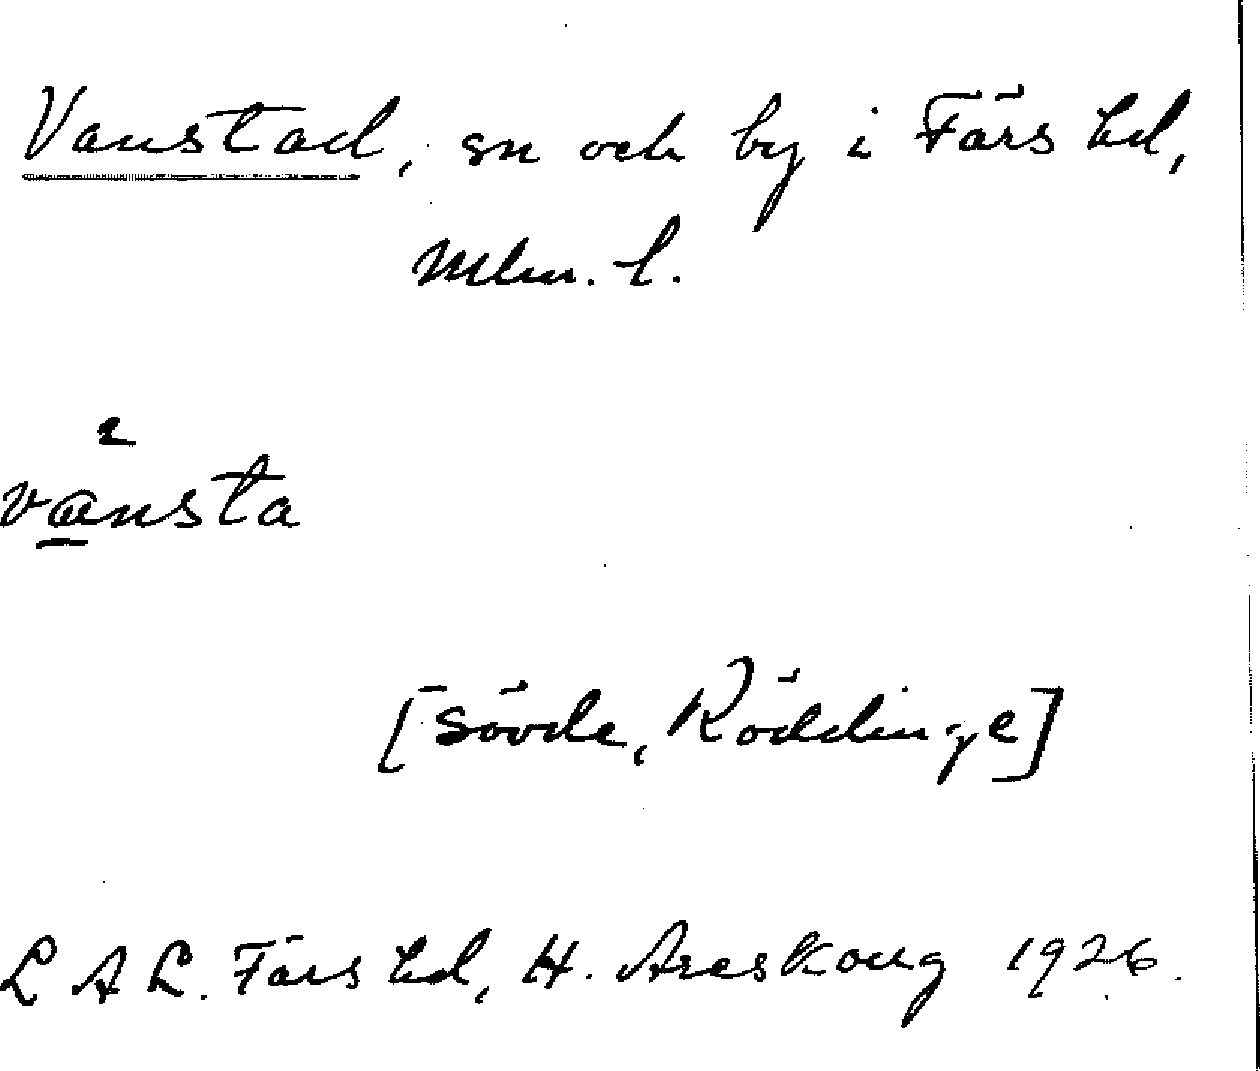 Vanstad, sn och by i Färs hd,
Mlm. l.
2
vansta
[Sövde, Röddinge]
L A L. Färs hd, H. Areskoug 1926.